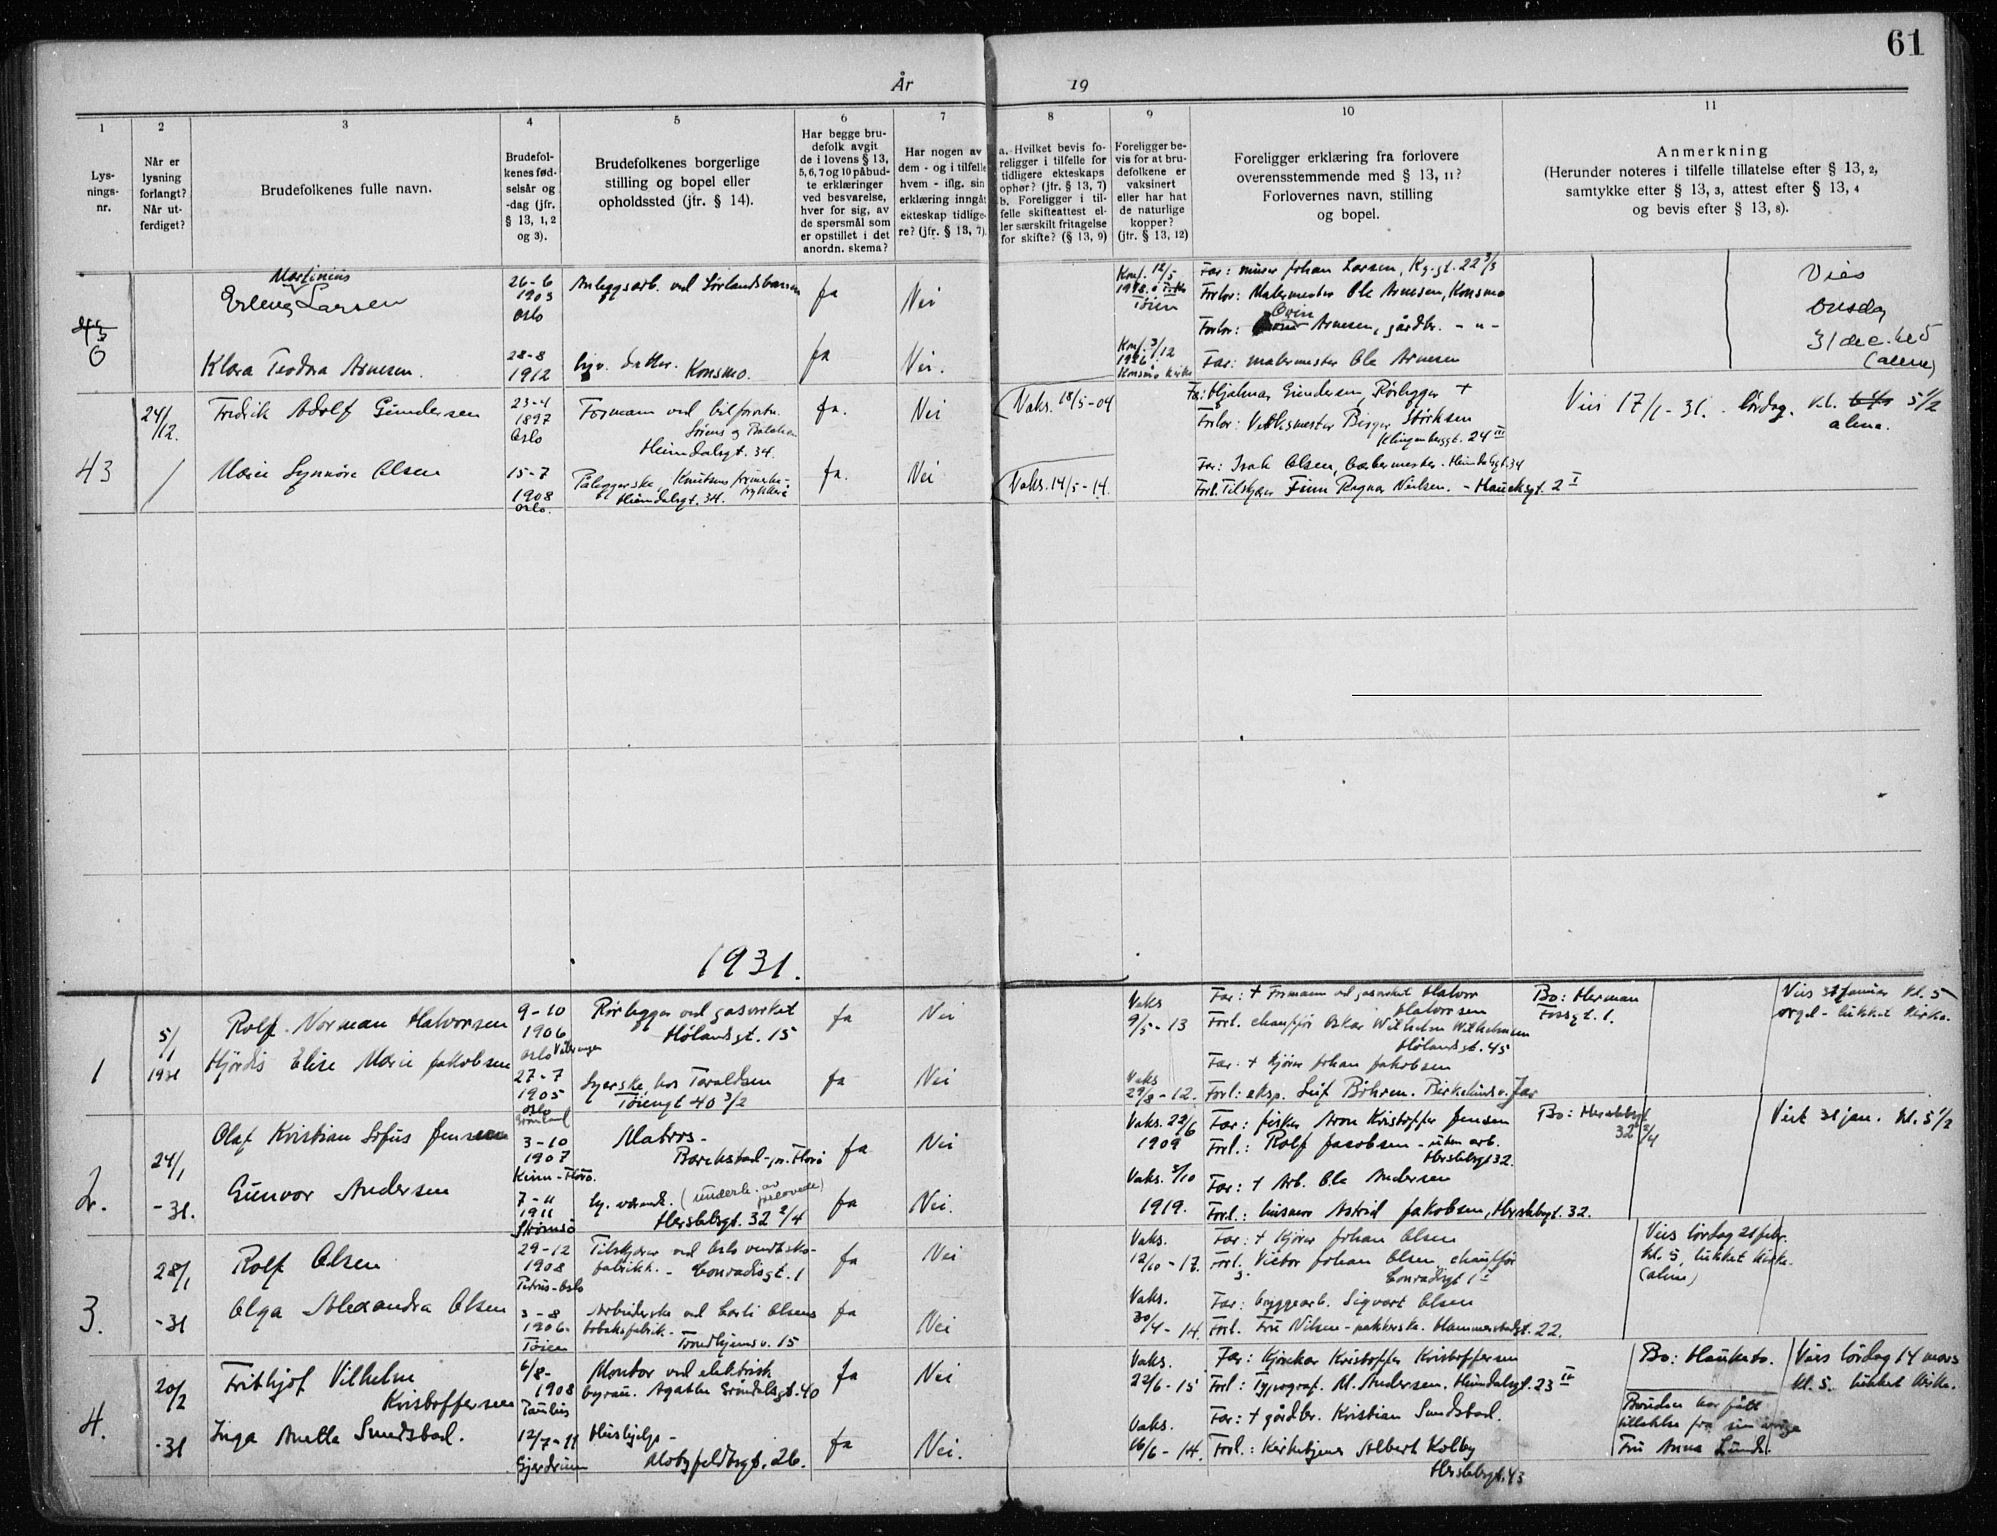 61
År 19
1 2 3 4 5 6 7 8 9 10 11
Lys-
nings-
nr.
Når er
lysning
forlangt?
Når ut-
ferdiget?
Brudefolkenes fulle navn.
Brudefol-
kenes fød-
selsår og
-dag (jfr.
§ 13, 1, 2
og 3).
Brudefolkenes borgerlige
stilling og bopel eller
opholdssted (jfr. § 14).
Har begge bru-
defolk avgit
de i lovens § 13,
5, 6, 7 og 10 påbud-
te erklæringer
ved besvarelse,
hver for sig, av
de spørsmål som
er opstillet i det
anordn. skema?
Har nogen av
dem - og i tilfelle
hvem - iflg. sin
erklæring inngåt
ekteskap tidlige-
re? (jfr. § 13, 7).
a. Hvilket bevis fo-
religger i tilfelle for
tidligere ekteskaps
ophør? (jfr. § 13, 7)
b. Foreligger i til-
felle skifteattest el-
ler særskilt fritagelse
for skifte? (§ 13, 9)
Foreligger be-
vis for at bru-
defolkene er
vaksinert
eller har hat
de naturlige
kopper?
(jfr. § 13, 12)
Foreligger erklæring fra forlovere
overensstemmende med § 13, 11?
Forlovernes navn, stilling
og bopel.
Anmerkning
(Herunder noteres i tilfelle tillatelse efter § 13, 2,
samtykke efter § 13, 3, attest efter § 13, 4
og bevis efter § 13, 8).
43
0
Martinius
Erling Larsen
26-6
1903
Oslo
Anleggsarb. ved Sørlandsbanen
ja
Nei
Konf. 12/5
1918
Tøien
Far: murer Johan Larsen, 22 3/3
Forlov: Malermester Ole Arnesen, Konsmo
Forlov: Arnesen, gårdbr. - " -
Vies
Onsdag
31 dec. kl 5
(alene)
Klara Teodora Arnesen.
28-8
1912
datter. Konsmo.
ja
Nei.
Konf. 3/12
1926
Konsmo kirke
Far: malermester Ole Arnesen
43
24/12.
Fredrik Adolf Gundersen
23-4
1897
Oslo
Formann ved bilforretn.
Sørens og Balchen
Heimdalsgt. 34.
ja.
Nei
Vaks. 18/5-04
Far: Hjalmar Gundersen, Rørlegger +
Forlov: Verksmester Birger Størksen
Klingenberggt. 24 III
Vies 17/1-31. lørdag. kl. 5 1/2
alene.
Marie Synnøve Olsen
15-7
1908
Oslo.
Påleggerske, Knutsens
trykkeri
Heimdalsgt. 34.
ja.
Nei
Vaks. 14/5-14.
Far: Isak Olsen, barbermester. Heimdalsgt. 34
Forl. Tilskjærer Finn Ragnar Nielsen. - Hauchsgt. 2 I
1931.
1
5/1
1931
Rolf Norman Halvorsen
9-10
1906
Oslo Vålerengen
Rørlegger ved gasverket
Hølandsgt. 15
ja
Nei
Vaks
9/5-13
Far: + Formann ved gasverket Halvor
Halvorsen
Forl. chauffør Oskar Wilhelm Wilhelmsen
Hølandsgt. 45
Bo: Herman
Fossgt. 1.
Vies 31 januar kl. 5
orgel - lukket kirke.
Hjørdis Elise Marie Jakobsen
27-7
1905
Oslo
Grønland
Syerske hos Taraldsen
Tøiengt 40 3/2
ja
Nei
Vaks
29/8-12.
Far: + kjører Johan Jakobsen
Forl: eksp. Leif Böhren. Birkelundsv. Jar
2.
24/1
-31.
Olaf Kristian Sofus Jensen
3-10
1907
Kinn-Florø.
Matros -
Barekstad - pr. Florø
ja
Nei
Vaks. 22/6
1909
Far: fisker Aron Kristoffer Jensen
Forl.: Rolf Jacobsen - uten arb.
Herslebsgt 32.
Bo: Herslebsgt
32 2/4
Viet 31 jan. kl. 5 1/2
Gunvor Andersen
7-11
1911
Strømsø
Sy. værend. (underh. av
forlovede)
Herslebsgt. 32 2/4
ja
Nei.
Vaks. 3/10
1919.
Far: + Arb. Ole Andersen
Forl.: husmor Astrid Jakobsen, Herslebsgt. 32.
3.
28/1
-31
Rolf Olsen
29-12
1908
Petrus-Oslo
Tilskjærer ved Oslo
fabrikk. - Conradisgt. 1
ja
Nei
Vaks.
12/10-17.
Far: + Kjører Johan Olsen
Forl. Victor Johan Olsen, chauffør
Conradisgt 1 II
Vies lørdag 21 febr.
kl. 5, lukket kirke.
(alene)
Olga Alexandra Olsen
3-8
1906-
Tøien
Arbeiderske ved Carli Olsens
tobaksfabrik - Trondhjemsv. 15
ja
Nei
Vaks.
30/4-14.
Far: bryggearb. Sigvart Olsen
Forl. Fru Nilsen - pakkerske. Hammerstadgt. 22.
4.
20/2
-31
Frithjof Vilhelm
Kristoffersen
6/8-
1908
Paulus
Montør ved elektrisk
byrau. Agathe Grøndalsgt. 40
ja
Nei
Vaks.
22/6-15
Far: Kjørekar Kristoffer Kristoffersen
Forl: Typograf. M. Andersen. Heimdalsgt. 23 IV
Bo: Hauketo.
Vies lørdag 14 mars
kl. 5. lukket kirke.
Inga Anette Sundsbad.
12/7-11
Gjerdrum
Hushjelp -
Clobyfeldtsgt. 26.
ja
Nei.
Vaks.
16/6-14.
Far: + gårdbr. Kristian Sundsbad.
Forl.: Kirketjener Albert Kolby
Herslebsgt. 43
Bruden har fått
tillatelse fra sin verge
Fru Anna Lund.